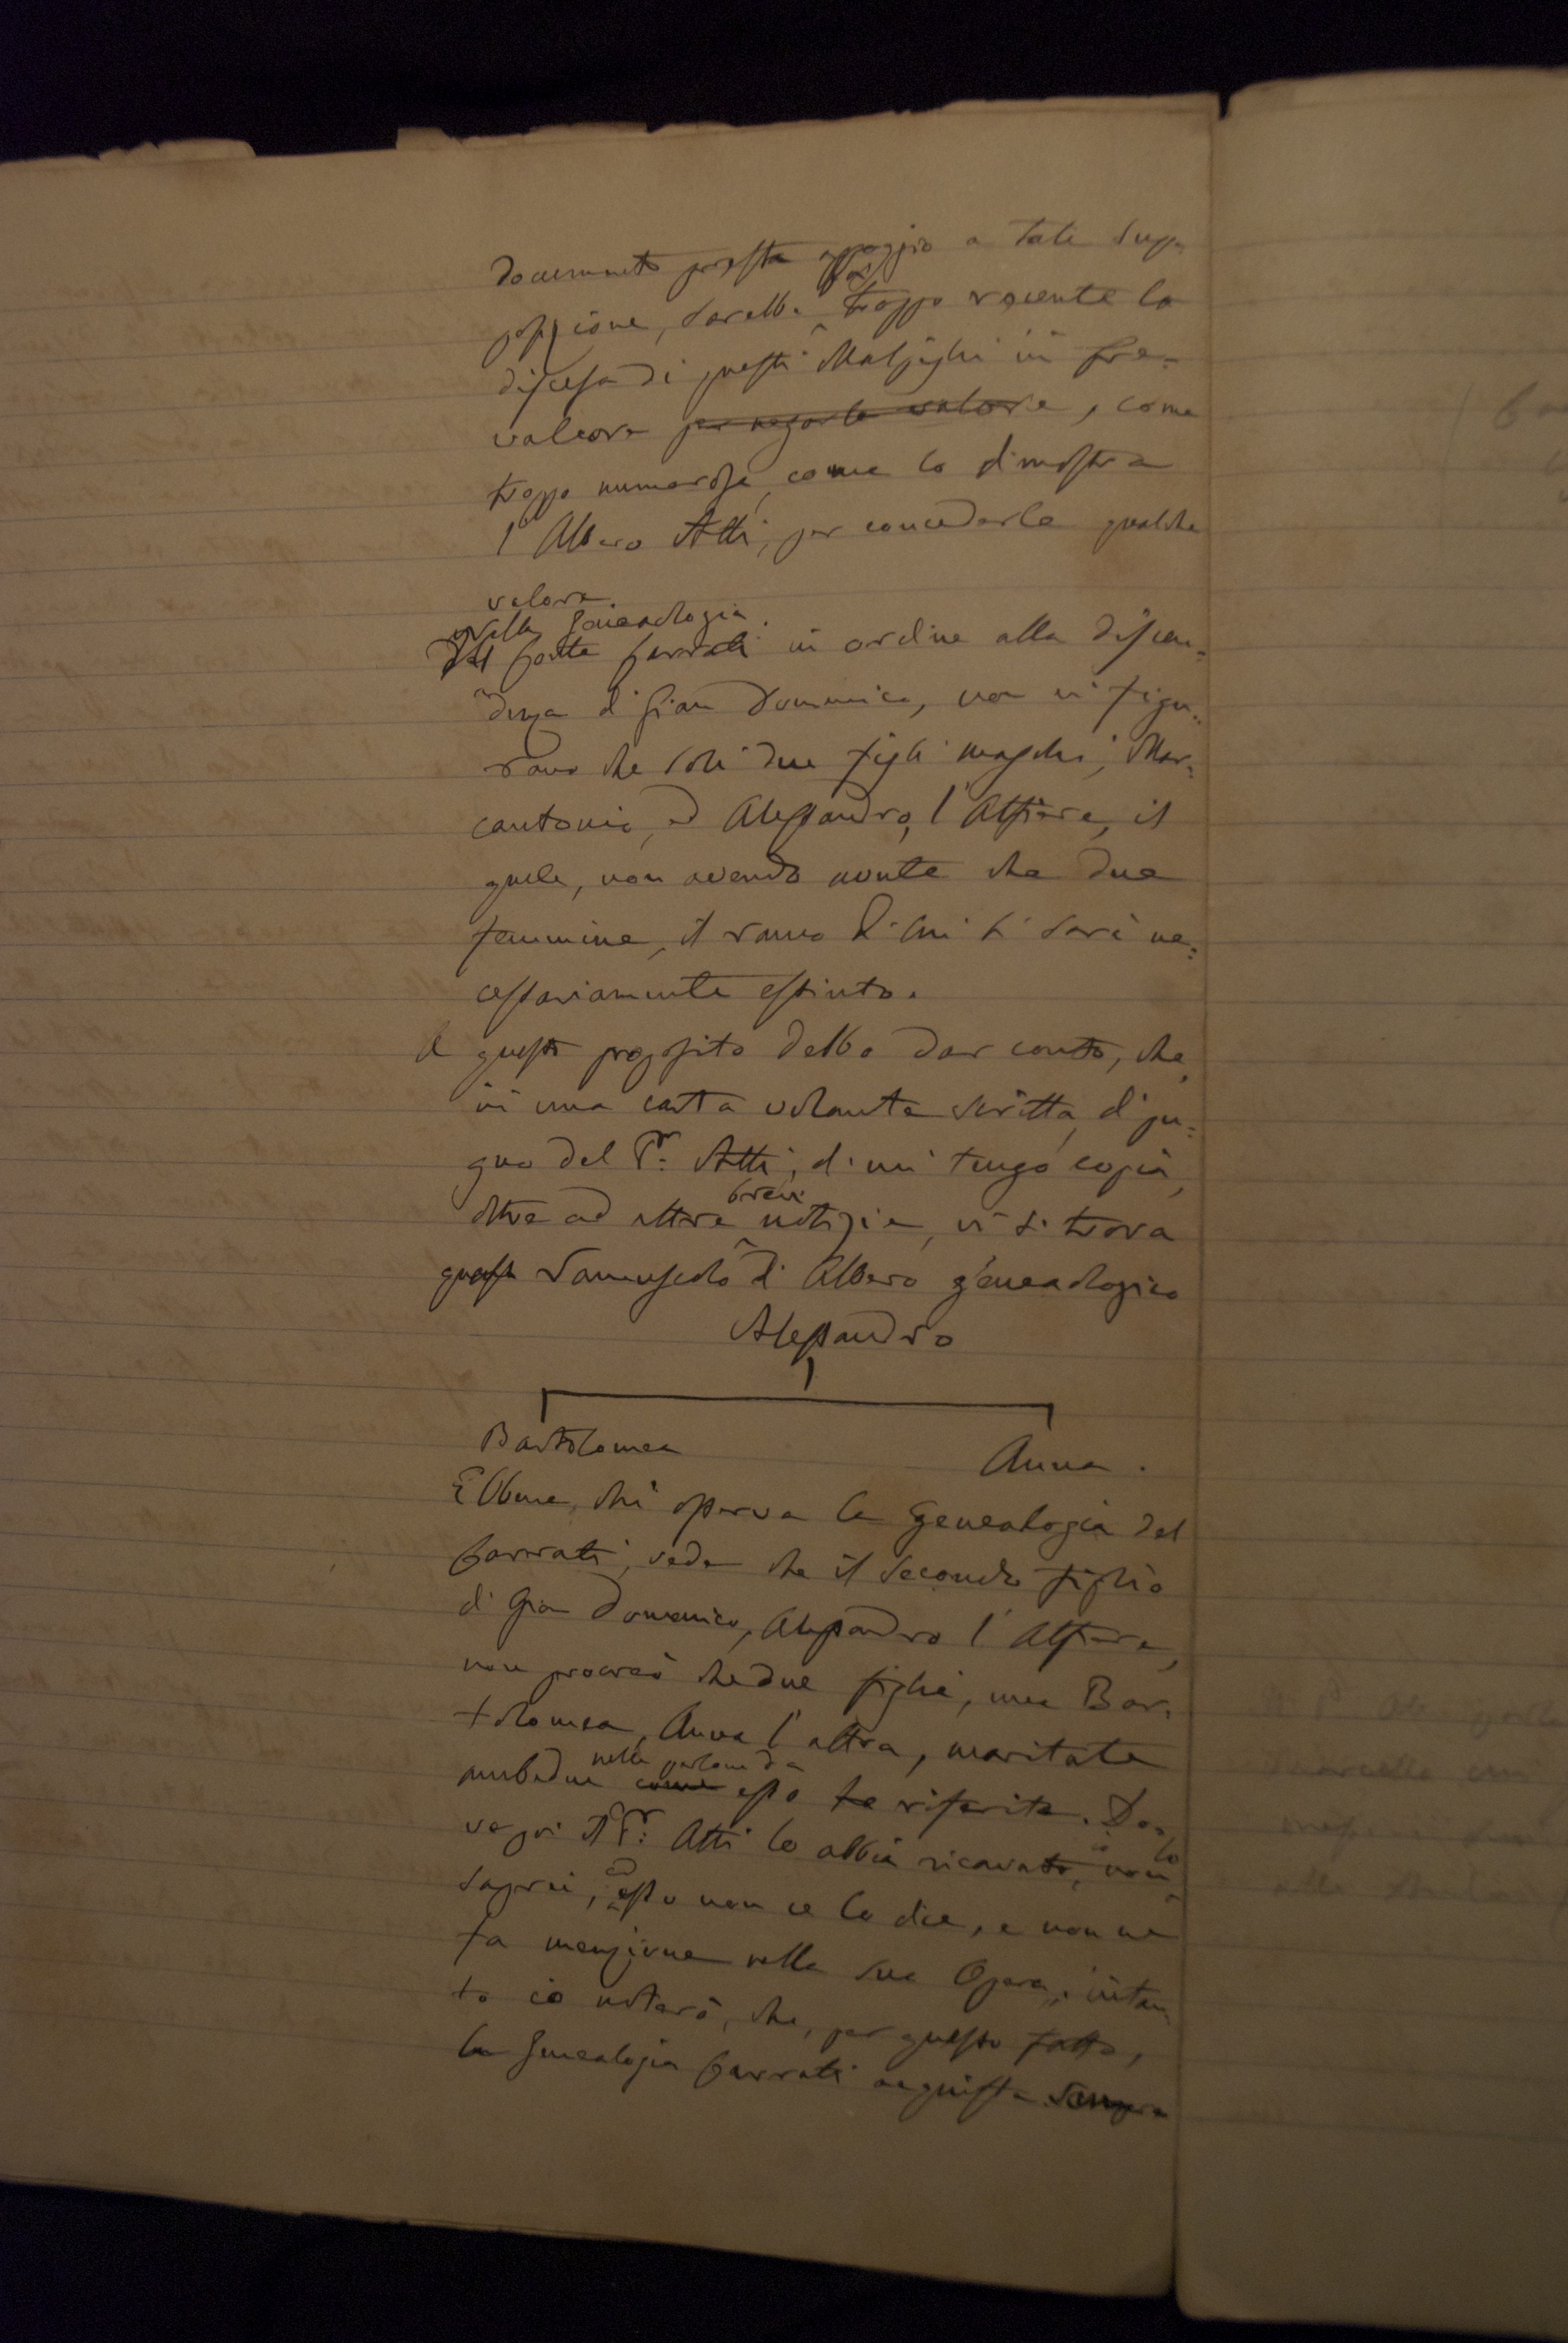 documento presta appoggio a tale sup-
posizione, sarebbe troppo recente la
discesa di questi Malpighi in Cre-
valcore per negarle valore, come
troppo numerosa, come lo dimostra
l'Albero Atti, per concederle qualche
valore.
nella Genealogia
Del Conte Carrati in ordine alla discen=
denza di Gian Domenico, non vi figu=
rano che soli due figli maschi, Mar=
cantonio, ed Alessandro, l'Alfiere, il
quale, non avendo avute che due
femmine, il ramo di lui si sarà ne=
cessariamente estinto.
A questo proposito debbo dar conto, che,
in una carta volante scritta, di pu=
gno del Pr: Atti, di cui tengo copia,
brevi
oltre ad altre notizie, vi si trova
questo ramuscolo di Albero genealogico
Alessandro
Bartolomea
Anna.
Ebbene, chi osserva la Genealogia del
Carrati, vede che il secondo figlio
di Gian Domenico, Alessandro l'Alfiere,
non procreò che due figlie, una Bar=
tolomea, Anna l'altra, maritate
nelle da
ambedue come esso riferite. Do=
ve poi il Pr: Atti lo abbia ricavato, io non lo
saprei, ed esso non ce lo dice, e non ne
fa menzione nella sua Opera, intan
to io noterò, che, per questo fatto,
la Genealogia Carrati acquista sempre